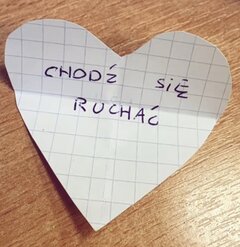 CHODŹ SIĘ
RUCHAĆ